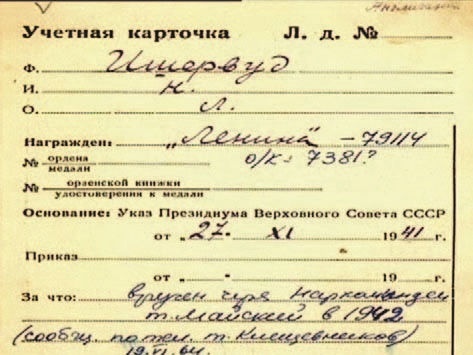 Англичанин
Учетная карточка Л. д. №
Ф. Ишервуд
И. Н.
О. Л.
Награжден: „Ленина“ – 79114
№ ордена медали о/к = 7381?
№ орденской книжки удостоверения к медали
Основание: Указ Президиума Верховного Совета СССР
от „27“ XI 1941 г.
Приказ
от „ - “ 19 г.
За что: вручен через
т. Майский в 1942
(сообщ. по тел. т.
19.VI.64.